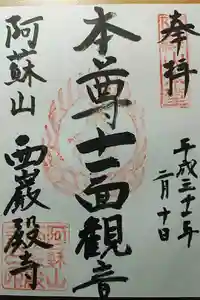 奉拝
平成三十一年
二月十日
本尊十一面觀音
阿蘇山
西巖殿寺